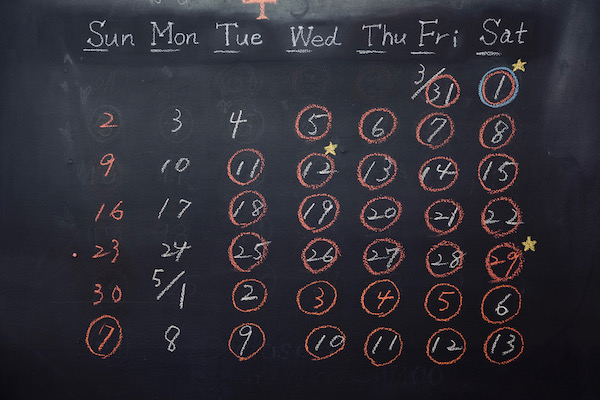 Sun Mon Tue Wed Thu Fri Sat
3/31 1
2 3 4 5 6 7 8
9 10 11 12 13 14 15
16 17 18 19 20 21 22
23 24 25 26 27 28 29
30 5/1 2 3 4 5 6
7 8 9 10 11 12 13